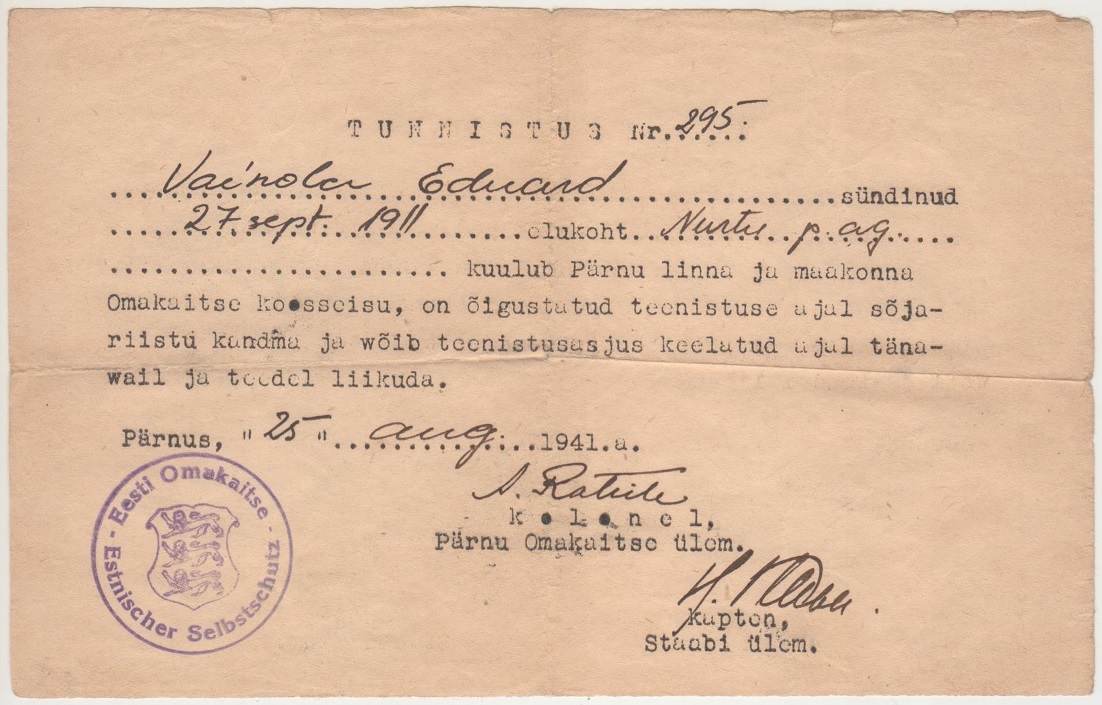 TUNNISTUS Nr. 295.
Vainola Eduard sündinud
27 sept. 1911 elukoht Nurtu p. ag.
kuulub Pärnu linna ja maakonna
Omakaitse koosseisu, on õigustatud teenistuse ajal sõja-
riistu kandma ja wõib teenistusasjus keelatud ajal täna-
wail ja teedel liikuda.
Pärnus, "25" aug. 1941.a.
kolonel,
Pärnu Omakaitse ülem.
kapten,
Staabi ülem.
- Eesti Omakaitse -
Estnischer Selbstschutz